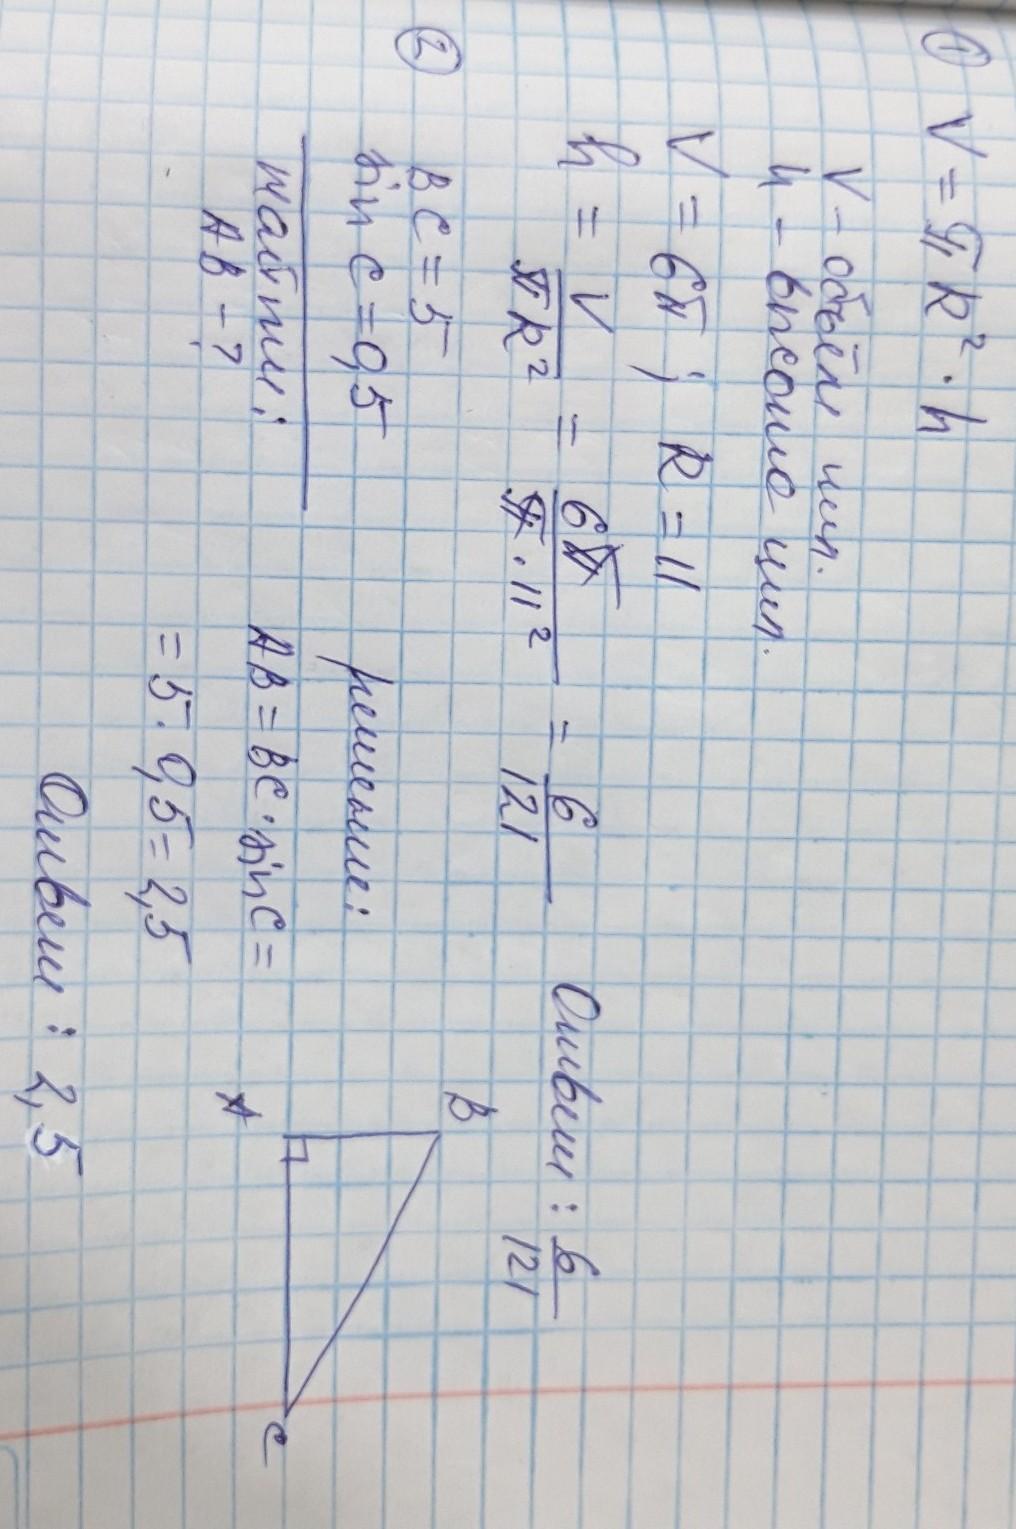 ①
V = πR² · h
V - объём цил.
h - высота цил.
V = 6π ; R = 11
h = V/πR² = 6π/π·11² = 6/121
Ответ : 6/121
②
BC = 5
sin C = 0,5
найти :
AB - ?
решение :
AB = BC · sin C =
= 5 · 0,5 = 2,5
B
A
C
Ответ : 2,5